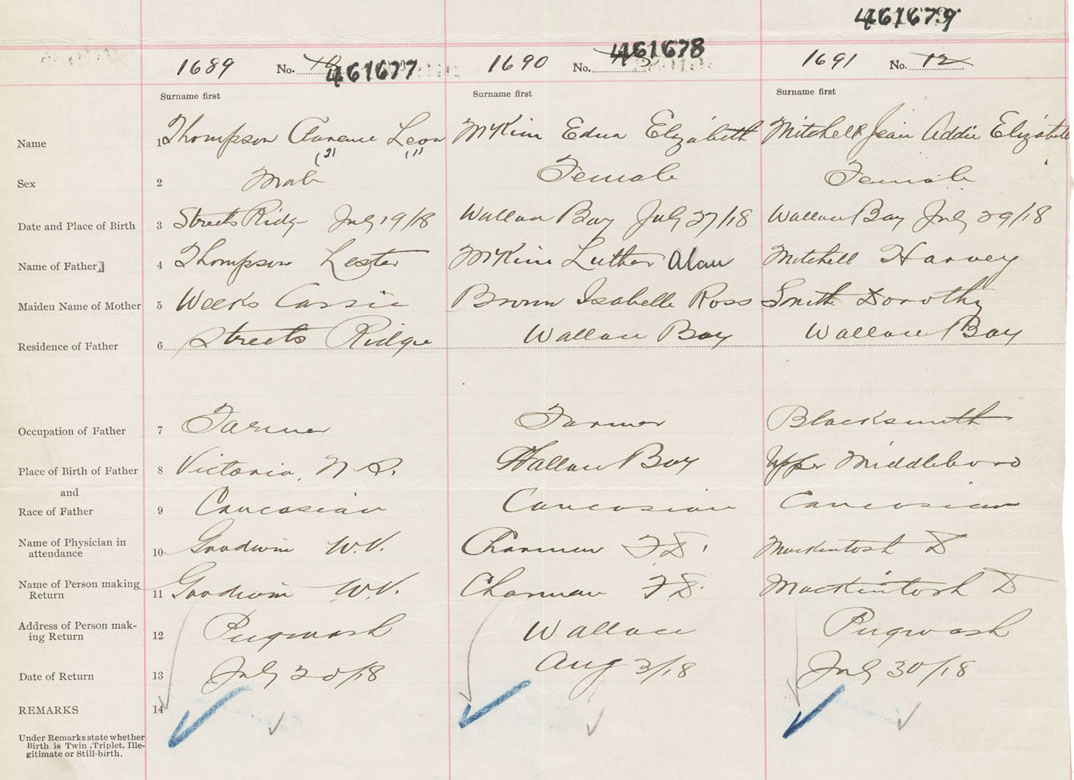 461679
1689 No. 461677 1690 No. 461678 1691 No. 12
Surname first Surname first Surname first
Name 1 Thompson Clarence Leon McKim Edna Elizabeth Mitchell Jean Addie Elizabeth
(2) (1)
Sex 2 Male Female Female
Date and Place of Birth 3 Streets Ridge July 19/18 Wallace Bay July 27/18 Wallace Bay July 29/18
Name of Father 4 Thompson Lester McKim Luther Alan Mitchell Harvey
Maiden Name of Mother 5 Weeks Cassie Brown Isabelle Ross Smith Dorothy
Residence of Father 6 Streets Ridge Wallace Bay Wallace Bay
Occupation of Father 7 Farmer Farmer Blacksmith
Place of Birth of Father 8 Victoria, N.S. Wallace Bay Upper Middleboro
and
Race of Father 9 Caucasian Caucasian Caucasian
Name of Physician in
attendance 10 Goodwin W.V. Charman F.D. Mackintosh D
Name of Person making
Return 11 Goodwin W.V. Charman F.D. Mackintosh D
Address of Person mak-
ing Return 12 Pugwash Wallace Pugwash
Date of Return 13 July 20/18 Aug 3/18 July 30/18
REMARKS 14
Under Remarks state whether
Birth is Twin, Triplet, Ille-
gitimate or Still-birth.